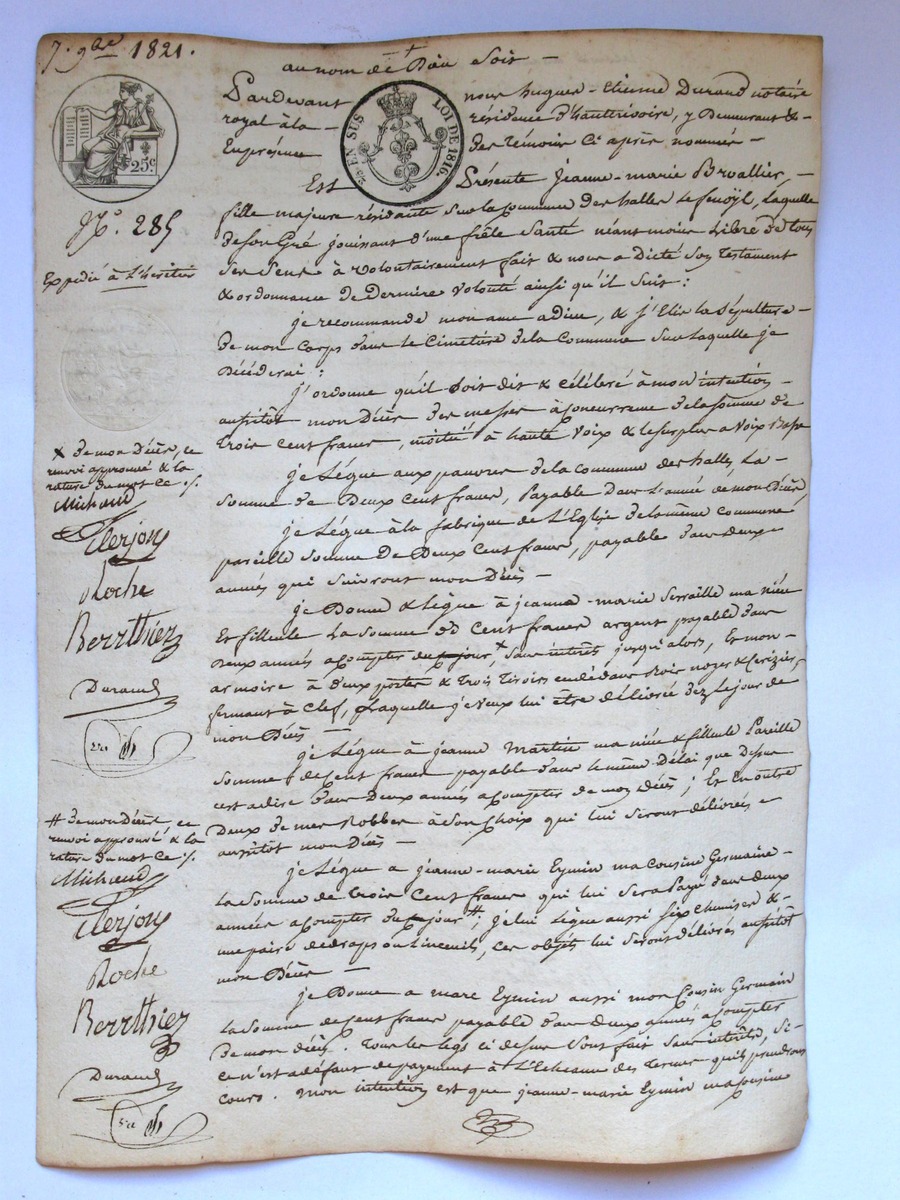 7. 9bre 1821.
au nom de Dieu Soit -
Pardevant nous hugues-Etienne Durand notaire
royal à la - résidence d'hauterivoire, y Demeurant &
En présence des témoins Ci après nommés -
EN SUS
LOI DE 1816.
25c
N°. 285
Expedié à l'héritier
Est Présente Jeanne-marie Brvallier, -
fille majeure résidante Sur la Commune des halles Le fenoÿl, Laquelle
de Son Gré jouissant d'une frêle Santé néant moins Libre de tous
Ses Sens à volontairement fait & nous a Dicté Son testament
& ordonnance de Derniere volonté ainsi qu'il Suit :
je recommande mon ame a dieu, & j'Elis la Sépulture -
De mon Corps dans le Cimetiere de la Commune Sur Laquelle je
Décéderai :
j'ordonne qu'il Soit dit & Célébré à mon intention -
aussitôt mon Décès des messes à Concurrence de la Somme de
trois Cent francs, moitié à haute Voix & le Surplus a Voix Basse
je Lègue aux pauvres de la Commune des halles La -
Somme de Deux Cent francs, Payable Dans L'année de mon Décès,
je Lègue à la fabrique de L'Eglise de la même Commune
pareille Somme De Deux Cent francs, payable dans deux -
années qui Suivront mon Décès -
je Donne & Lègue à jeanne-marie Serraille ma nièce
Et filleule La Somme de Cent francs argent payable dans
Deux années a Compter du jour, x Sans intérêts jusqu'alors, Et mon -
armoire à deux portes & trois tiroirs en dedans Bois noyer & Cerizier,
fermant à Clef, Laquelle je Veux lui être délivrée dez le jour de
mon Décès -
je Lègue à jeanne Martin ma nièce & filleule Pareille
Somme de Cent francs payable dans le même Délai que dessus
c'est a dire dans Deux années a Compter de mon décès ; Et En outre
Deux de mes Robbes à Son Choix qui lui Seront délivrées -
aussitôt mon Décès -
je Lègue a jeanne-marie Eymin ma Cousine Germaine -
La Somme de trois Cent francs qui lui Sera Payé dans deux
années a Compter du jour #; je lui Lègue aussi Six Chemises &
une paire de draps ou Linceuils, Ces objets lui Seront délivrés aussitôt
mon Décès -
je Donne a marc Eymin aussi mon Cousin Germain
La Somme de Cent francs payable dans deux années a Compter
De mon décès. Tous les legs ci dessus Sont fait Sans intérêts, Si -
Ce n'est a défaut de payement à L'Echéance des termes qu'ils prendront
Cours. Mon intention est que jeanne-marie Eymin ma Cousine
x de mon Décès, ce
renvoi approuvé & la
rature du mot Ce ./.
Michaud
Clerjon
Roche
Berrthier
Durand
# de mon Décès ce
renvoi approuvé & la
rature du mot Ce ./.
Michaud
Clerjon
Roche
Berrthier
Durand